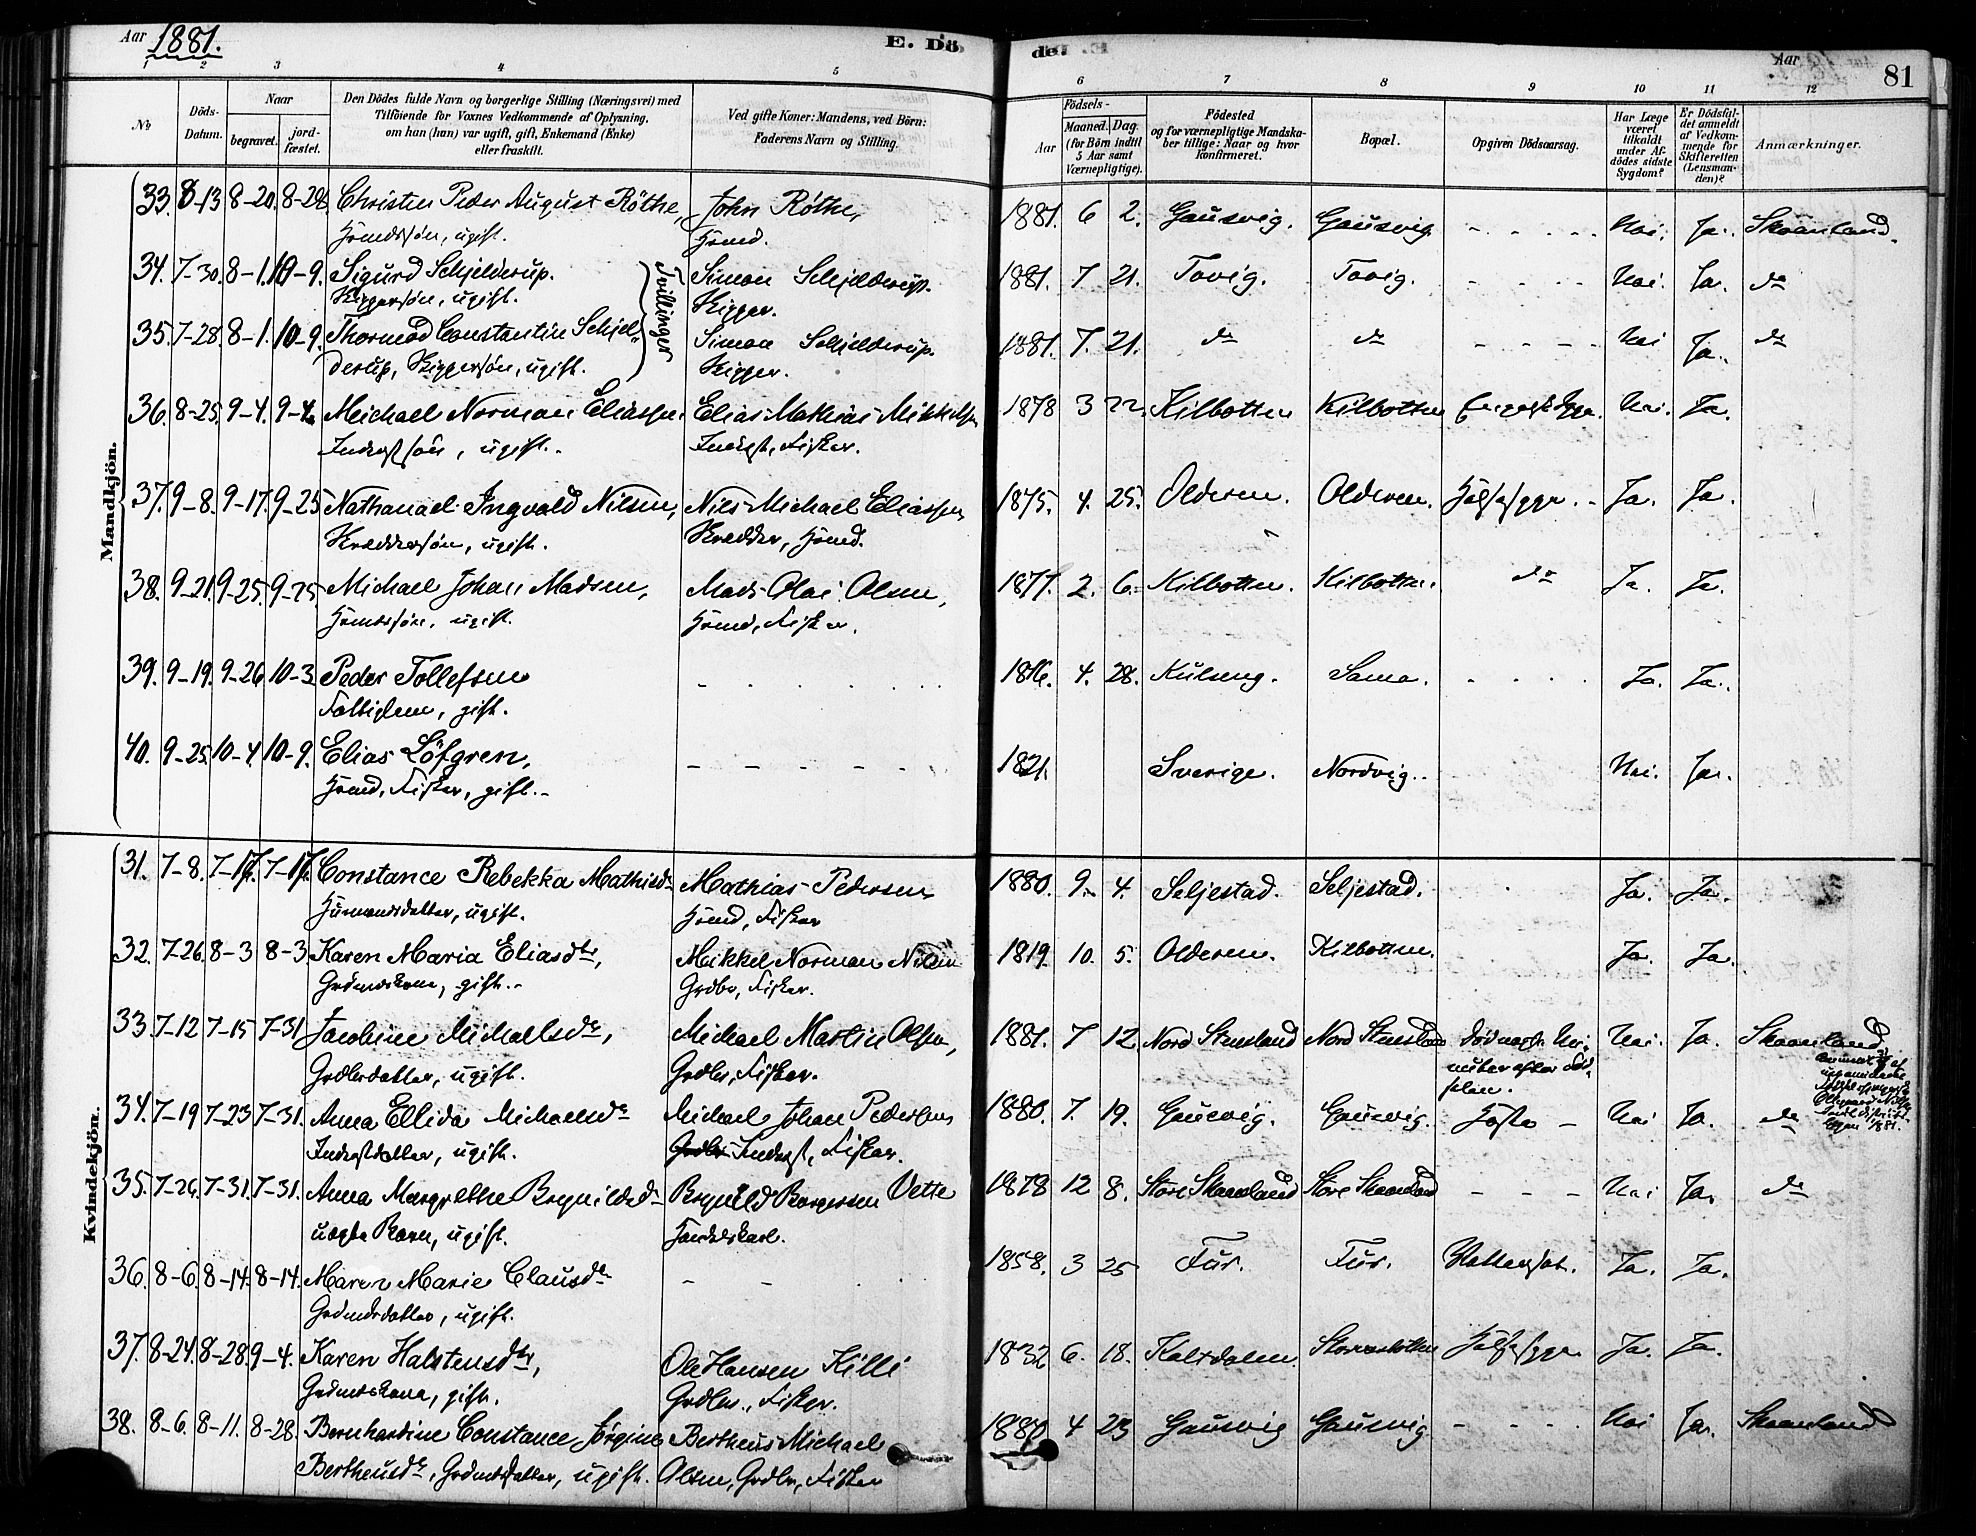 Aar 1881.
E. Dö
de. E
Aar
81
1 2 3 4 5 6 7 8 9 10 11 12
No
Döds-Datum.
Naar
begravet.
jordfæstet.
Den Dödes fulde Navn og borgerlige Stilling (Næringsvei) med
Tilföiende for Voxnes Vedkommende af Oplysning,
om han (hun) var ugift, gift, Enkemand (Enke)
eller fraskilt.
Ved gifte Koner: Mandens, ved Börn:
Faderens Navn og Stilling.
Födsels-
Aar
Maaned.
Dag.
(for Börn indtil
5 Aar samt
Værnepligtige).
Födested
og for værnepligtige Mandska-
ber tillige: Naar og hvor
konfirmeret.
Bopæl.
Opgiven Dödsaarsag.
Har Læge
været
tilkaldt
under Af-
dödes sidste
Sygdom?
Er Dödsfal-
det anmeldt
af Vedkom-
mende for
Skifteretten
(Lensman-
den)?
Anmærkninger.
Mandkjön.
33. 8-13 8-20. 8-28. Christen Peder August Röthe, John Röthe, 1881. 6 2. Gausvig. Gausvig. - - - - Nei. Ja. Skaanland.
Hsmdssön, ugift. Hsmd.
34. 7-30. 8-1. 10-9. Sigurd Schjelderup. Simon Schjelderup. 1881. 7 21. Tovig. Tovig. - - - - Nei. Ja. do
Skippersön, ugift. Skipper.
Tvillinger
35. 7-28. 8-1. 10-9. Thormod Constantin Schjel- Simon Schjelderup. 1881. 7. 21. do do - - - - Nei Ja. do
derup, Skippersön, ugift. Skipper.
36. 8-25. 9-4. 9-4. Michael Norman Eliassen. Elias Mathias Mikkelsen 1878 3 22. Kilbotten Kilbotten Nei. Ja.
Inderstsön, ugift. Inderst, Fisker.
37. 9-8. 9-17. 9-25 Nathanael Ingvald Nilsen, Nils Michael Eliassen 1875. 4. 25. Olderen. Olderen. Halssyge. - Ja. Ja.
Skræddersön, ugift. Skrædder, Hsmd.
38. 9-21. 9-25. 9-25 Michael Johan Madsen, Mads Olai Olsen, 1877. 2. 6. Kilbotten. Kilbotten. do Ja. Ja.
Hsmdssön, ugift. Hsmd, Fisker.
39. 9-19. 9-26 10-3. Peder Tollefsen - - - - 1816. 4. 28. Kulseng. Sama. - - - - Ja. Ja.
Fattiglem, gift.
40. 9-25. 10-4. 10-9. Elias Löfgren, - - - - - - 1821. Sverige. Nordvig. Nei. Ja.
Hsmd, Fisker, gift.
Kvindekjön.
31. 7-8. 7-17. 7-17. Constance Rebekka Mathisdr Mathias Pedersen 1880. 9. 4. Seljestad. Seljestad. Ja. Ja.
Husmandsdatter, ugift. Hsmd, Fisker
32. 7-26. 8-3 8-3 Karen Maria Eliasdtr, Mikkel Norman Nilsen 1819. 10. 5. Olderen. Kilbotten. Ja. Ja.
Grdmdskone, gift. Grdbr, Fisker.
33. 7-12 7-15 7-31 Jacobine Michaelsdr, Michael Martin Olsen, 1881. 7 12. Nord Stensland Nord Stensland Nei. Ja. Skaanland
Grdbrdatter, ugift. Grdbr, Fisker.
34. 7-19 7-23 7-31. Anna Ellida Michaelsdr Michael Johan Pedersen 1880. 7. 19. Gausvig. Gausvig. Hoste - Nei Ja. do
Inderstdatter, ugift. Grdbr Inderst, Fisker.
35. 7-26. 7-31. 7-31. Anna Margrethe Brynildsdr Brynild Borgersen Vette 1878 12 8. Store Skaanland Store Skaanland - - - Nei Ja. do
uægte Barn, ugift. Handelskarl.
36. 8-6. 8-14. 8-14. Maren Marie Clausdr - - 1858. 3 25 Fur. Fur. Vattersot. Ja. Ja.
Grdmdsdatter, ugift.
37. 8-24. 8-28. 9-4. Karen Halstensdtr, Ole Hansen Killi 1832 6. 18. Kaltdalen. Halssyge Ja. Ja.
Grdmdskone, gift. Grdbr., Fisker.
38. 8-6. 8-11. 8-28. Bernhardine Constance Jörgine Bertheus Michael 1880 4 23 Gausvig Gausvig - - - - Nei Ja. Skaanland
Bertheusdr, Grdmdsdatter, ugift. Olsen, Grdbr, Fisker